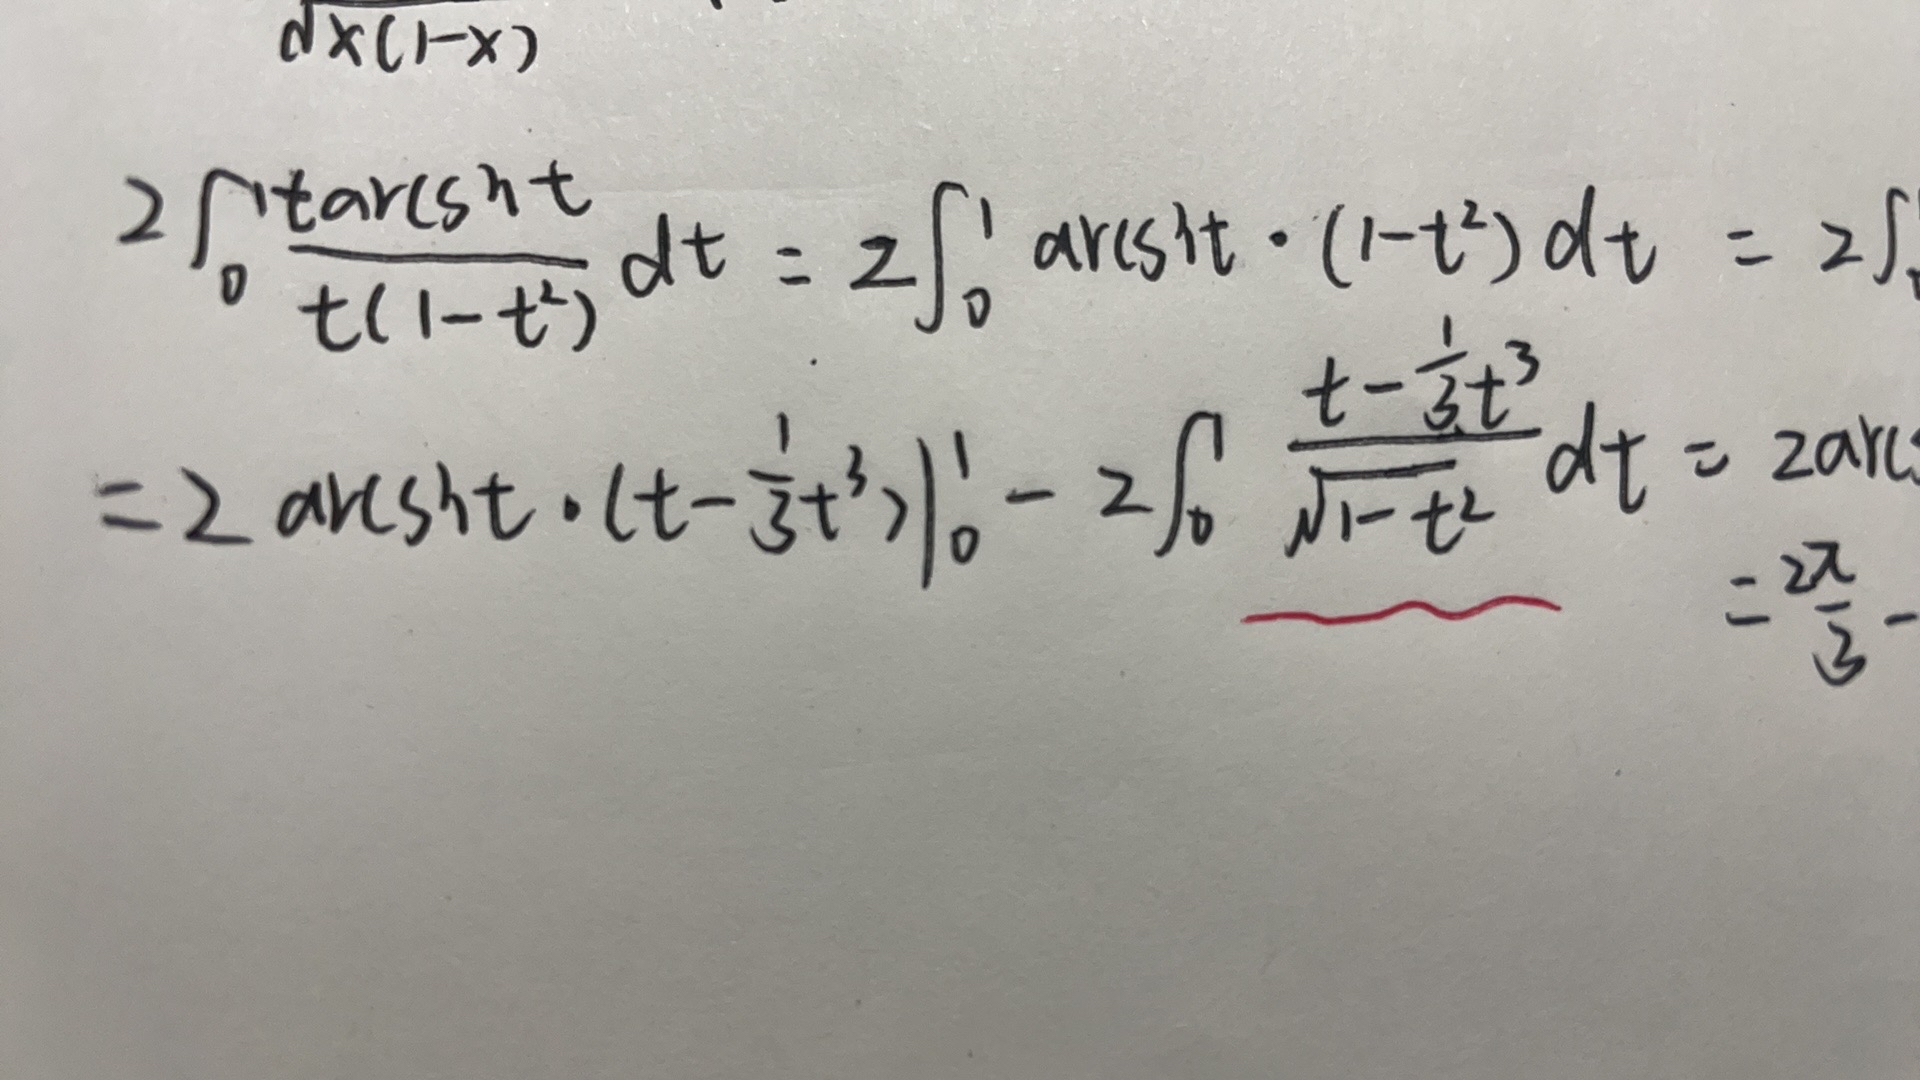 √x(1-x)
2∫₀¹ tarcsht / t(1-t²) dt = 2∫₀¹ arcsht · (1-t²) dt = 2∫
= 2 arcsht · (t - 1/3 t³) |₀¹ - 2∫₀¹ (t - 1/3 t³) / √1-t² dt = 2arcs
= 2π/3 -